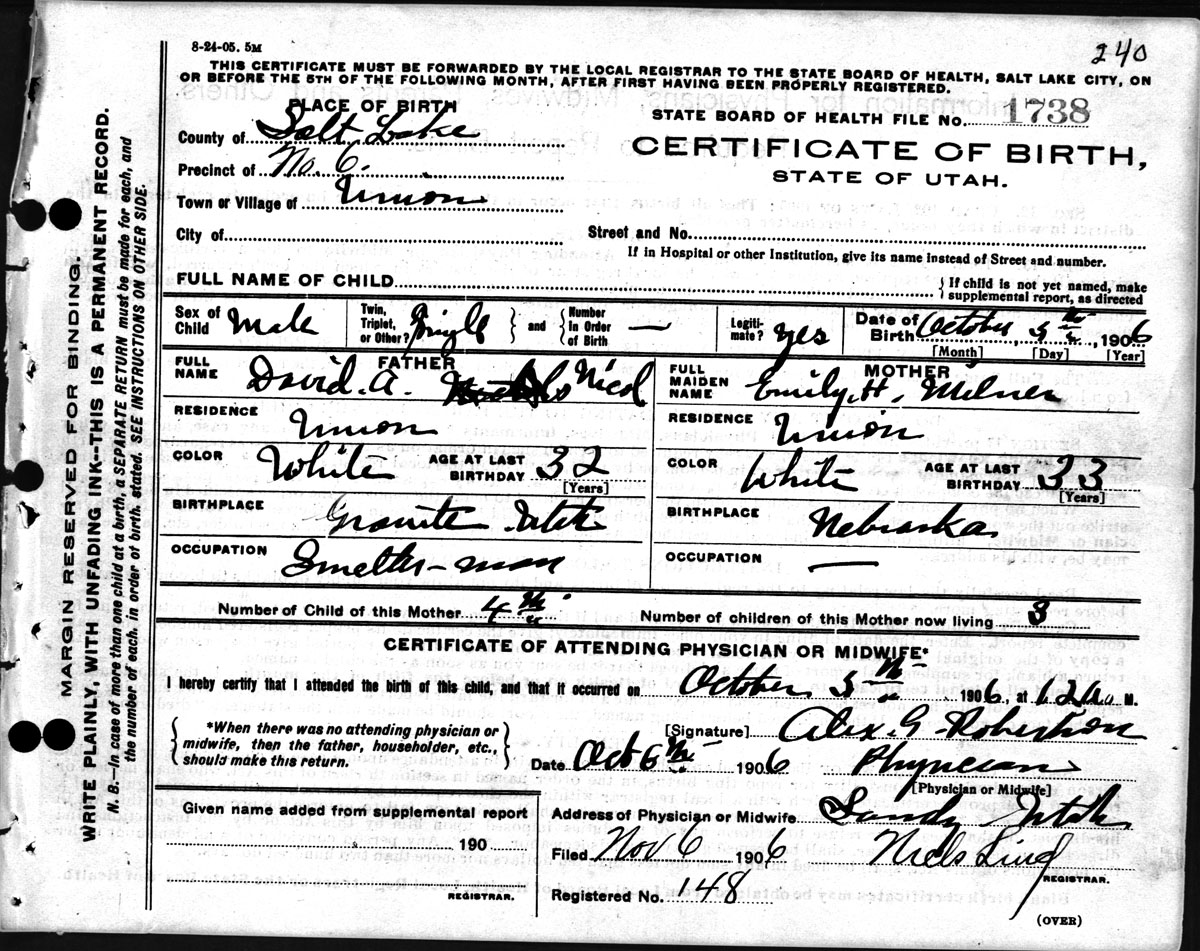 240
8-24-05. 5M
THIS CERTIFICATE MUST BE FORWARDED BY THE LOCAL REGISTRAR TO THE STATE BOARD OF HEALTH, SALT LAKE CITY, ON
OR BEFORE THE 5TH OF THE FOLLOWING MONTH, AFTER FIRST HAVING BEEN PROPERLY REGISTERED.
PLACE OF BIRTH
STATE BOARD OF HEALTH FILE NO. 1738
County of Salt Lake
CERTIFICATE OF BIRTH,
Precinct of No. 6.
STATE OF UTAH.
Town or Village of Union
City of
Street and No.
If in Hospital or other Institution, give its name instead of Street and number.
FULL NAME OF CHILD
{ If child is not yet named, make supplemental report, as directed
Sex of Child Male
Twin, Triplet, or Other? Single } and { Number In Order of Birth —
Legitimate? yes
Date of Birth October 5th, 1906
[Month] [Day] [Year]
FATHER
FULL NAME David. A. Nicol
RESIDENCE Union
COLOR White AGE AT LAST BIRTHDAY 32
[Years]
BIRTHPLACE Granite Utah
OCCUPATION Smelter-man
MOTHER
FULL MAIDEN NAME Emily. H. Milner
RESIDENCE Union
COLOR White AGE AT LAST BIRTHDAY 33
[Years]
BIRTHPLACE Nebraska
OCCUPATION —
Number of Child of this Mother 4th Number of children of this Mother now living 3
CERTIFICATE OF ATTENDING PHYSICIAN OR MIDWIFE*
I hereby certify that I attended the birth of this child, and that it occurred on October 5th 1906, at 12 a. M.
{ *When there was no attending physician or midwife, then the father, householder, etc., should make this return. }
[Signature] Alex. G Robertson
Date Oct 6th 1906 Physician
[Physician or Midwife]
Given name added from supplemental report
190
REGISTRAR.
Address of Physician or Midwife Sandy Utah
Filed Nov 6 1906 Niels Lind
REGISTRAR.
Registered No. 148
(OVER)
MARGIN RESERVED FOR BINDING.
WRITE PLAINLY, WITH UNFADING INK--THIS IS A PERMANENT RECORD.
N. B.—In case of more than one child at a birth, a SEPARATE RETURN must be made for each, and
the number of each, in order of birth, stated. SEE INSTRUCTIONS ON OTHER SIDE.